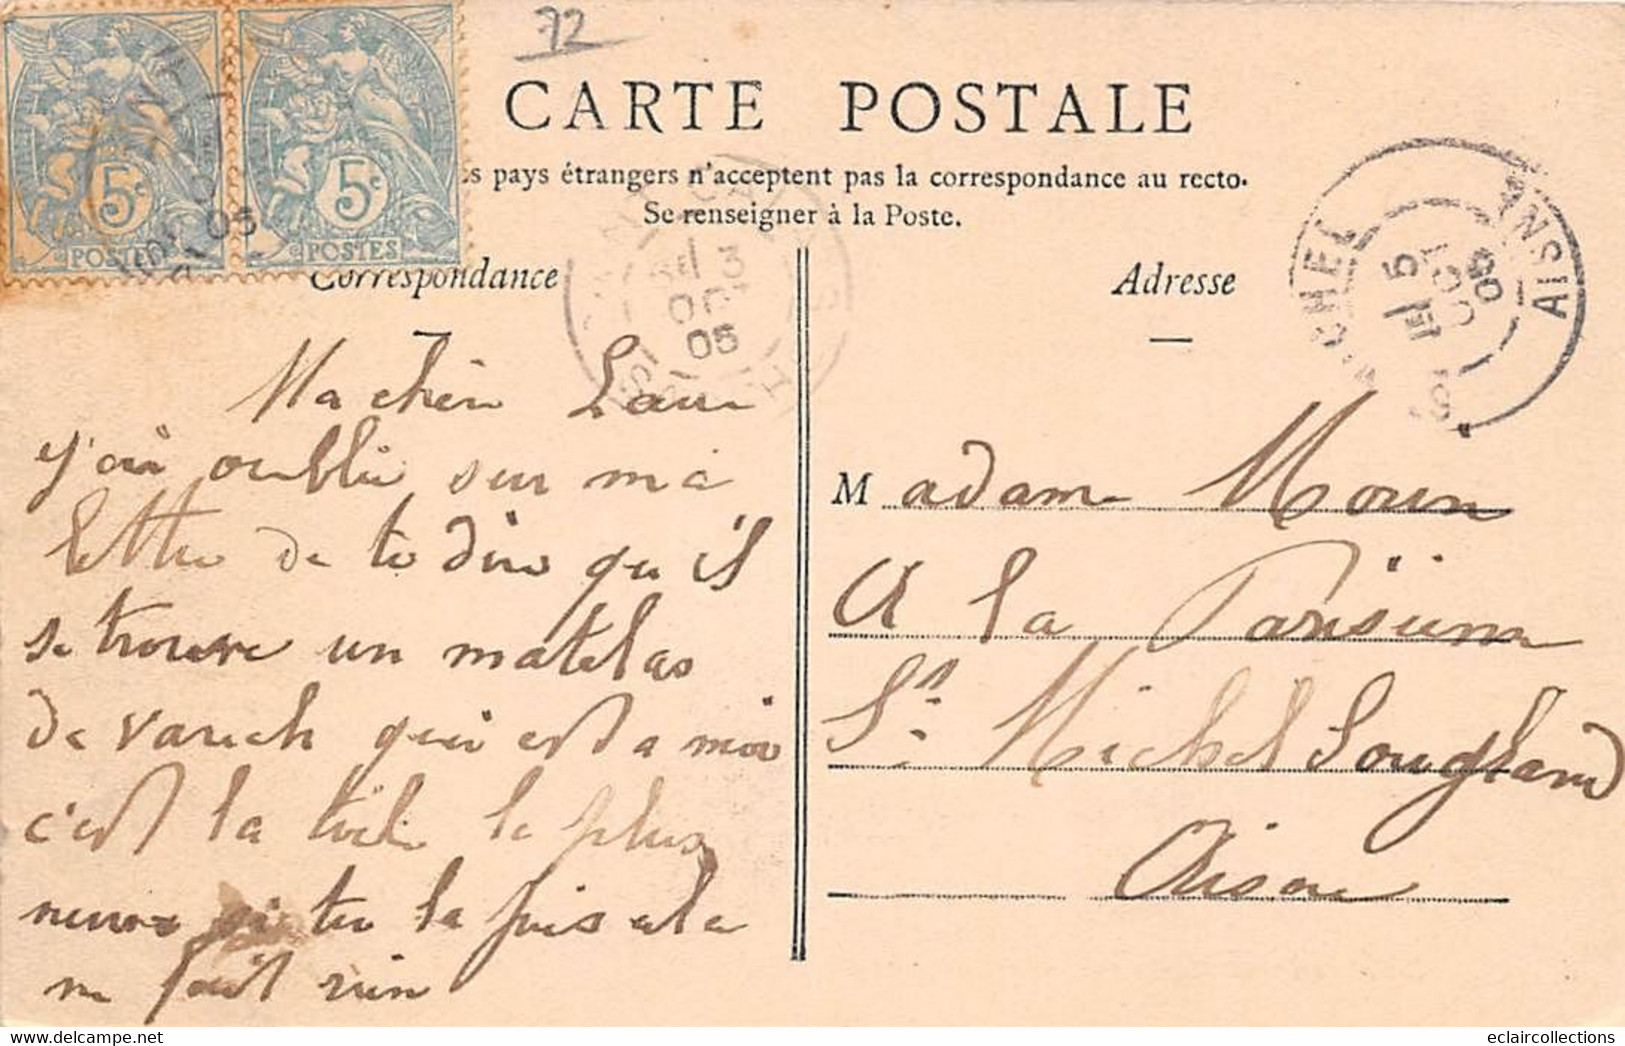 72
CARTE POSTALE
s pays étrangers n'acceptent pas la correspondance au recto.
Se renseigner à la Poste.
5c
POSTES
5c
POSTES
05
Correspondance
3
OCT
05
Adresse
5
OCT
05
AISNE
Ma chère
j'ai oublié sur ma
lettre de te dire qu'il
se trouve un matelas
de varech qui est a moi
c'est la toile la plus
neuve si tu la
ne fait rien
Madame
A la Parisienne
St. Michel Sougland
Aisne
eclaircollections